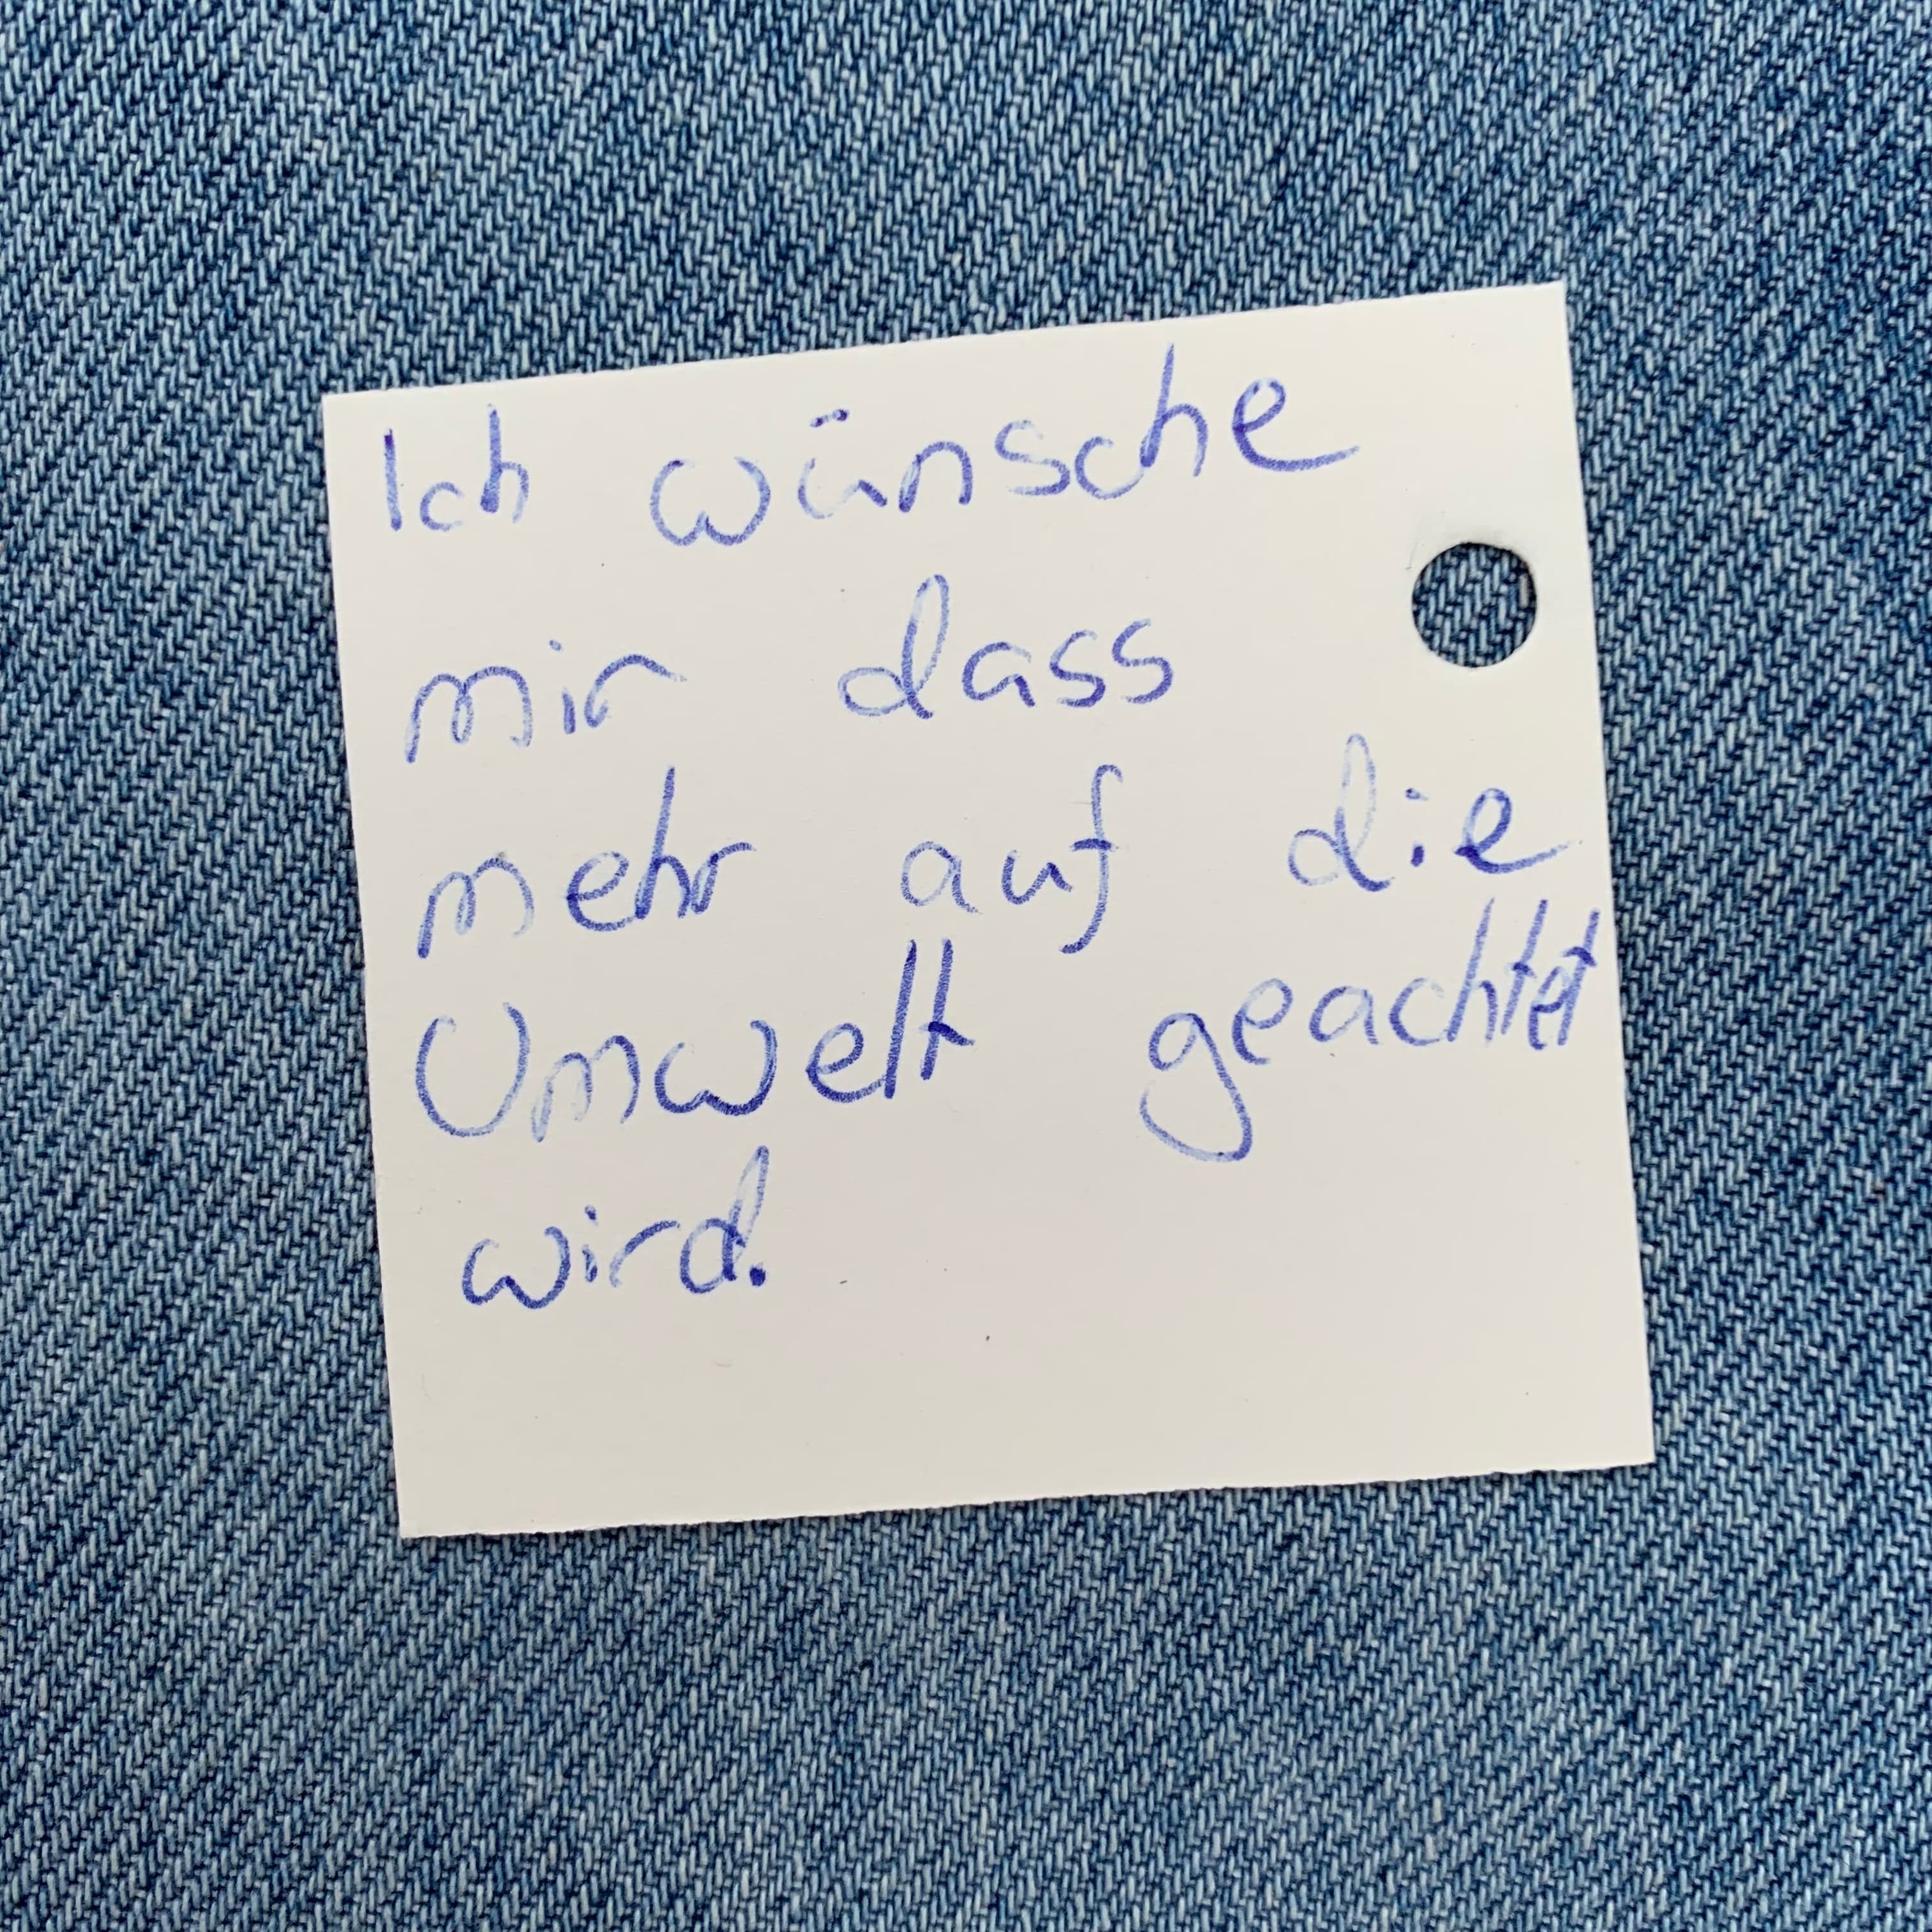 Ich wünsche
mir dass
mehr auf die
Umwelt geachtet
wird.